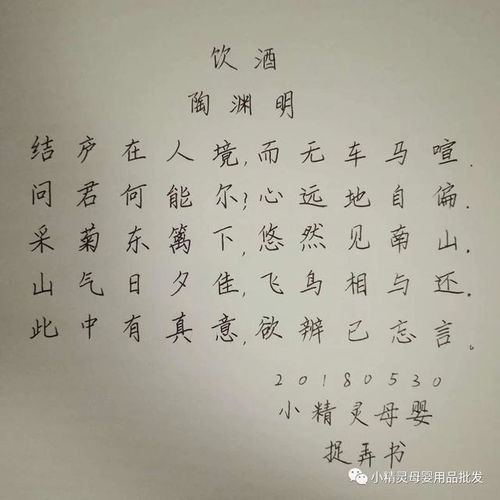 饮酒
陶渊明
结庐在人境,而无车马喧.
问君何能尔?心远地自偏.
采菊东篱下,悠然见南山.
山气日夕佳,飞鸟相与还.
此中有真意,欲辨已忘言。
20180530
小精灵母婴
捉弄书
小精灵母婴用品批发